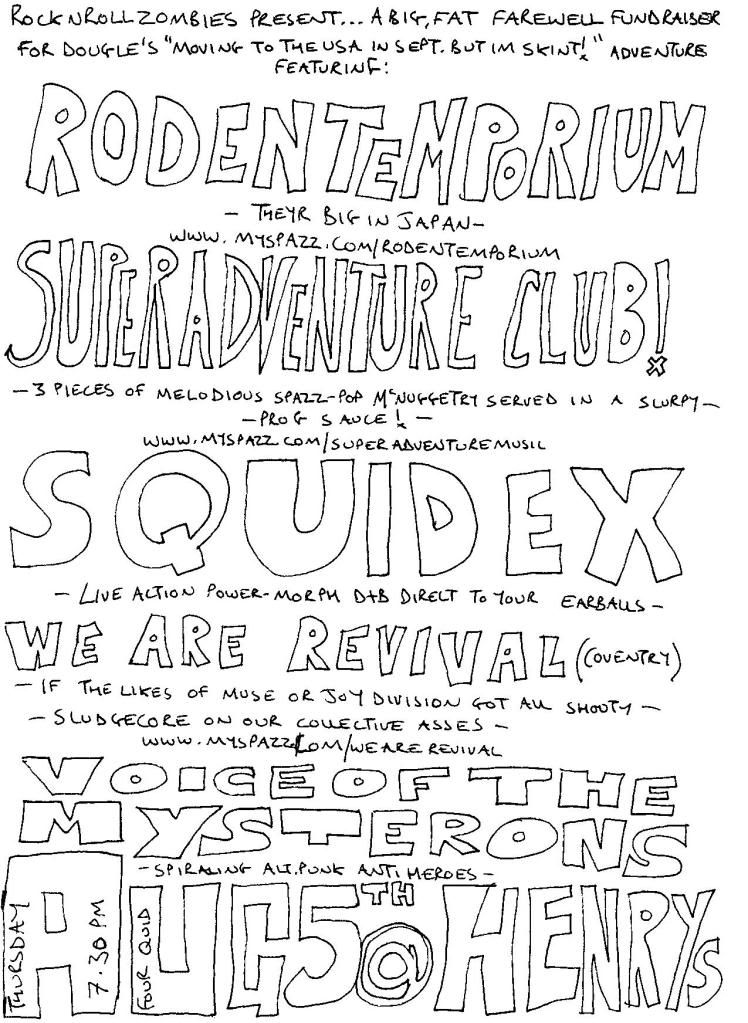 ROCK N ROLL ZOMBIES PRESENT... A BIG, FAT FAREWELL FUNDRAISER
FOR DOUGLE'S "MOVING TO THE USA IN SEPT. BUT IM SKINT!" ADVENTURE
FEATURING:
RODENTEMPORIUM
- THEYR BIG IN JAPAN -
WWW.MYSPAZZ.COM/RODENTEMPORIUM
SUPERADVENTURE CLUB!
- 3 PIECES OF MELODIOUS SPAZZ-POP McNUGGETRY SERVED IN A SLURPY -
- PROG SAUCE! -
WWW.MYSPAZZ.COM/SUPERADVENTUREMUSIC
SQUIDEX
- LIVE ACTION POWER-MORPH D+B DIRECT TO YOUR EARBALLS -
WE ARE REVIVAL (COVENTRY)
- IF THE LIKES OF MUSE OR JOY DIVISION GOT ALL SHOUTY -
- SLUDGECORE ON OUR COLLECTIVE ASSES -
WWW.MYSPAZZ.COM/WEAREREVIVAL
VOICE OF THE
MYSTERONS
- SPIRALING ALT.PUNK ANTI HEROES -
THURSDAY
7.30PM
FOUR QUID
AUG 5TH @ HENRYS